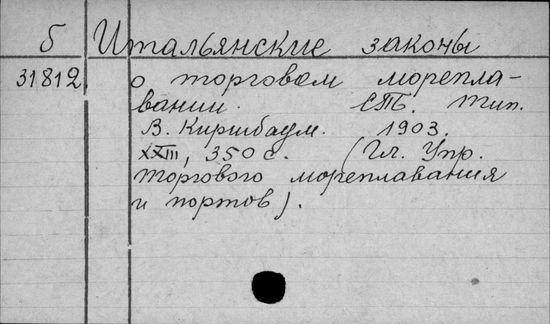 Б Итальянские законы
31812 о торговом морепла-
вании. СПб. тип.
В. Киршбаум. 1903.
XXIII, 350 с. (Гл. Упр.
торгового мореплавания
и портов).